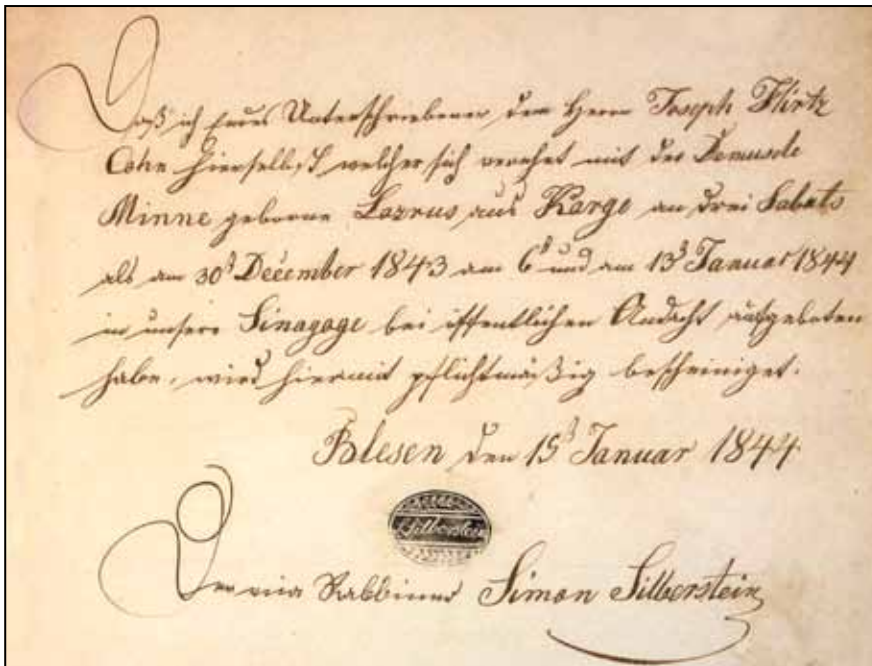 Daß ich Endes Unterschriebener den Herrn Joseph Hirtz
Cohn hierselbst welcher sich verehet mit der Demusele
Minne geborne Lazrus aus Karge an drei Sabats
als am 30t December 1843 am 6t und am 13t Januar 1844
in unsere Sinagoge bei öffentlichen Andacht aufgeboten
habe, wird hiermit pflichtmäßig bescheiniget.
Blesen den 15t Januar 1844
Silberstein
Der Rabbiner Simon Silberstein